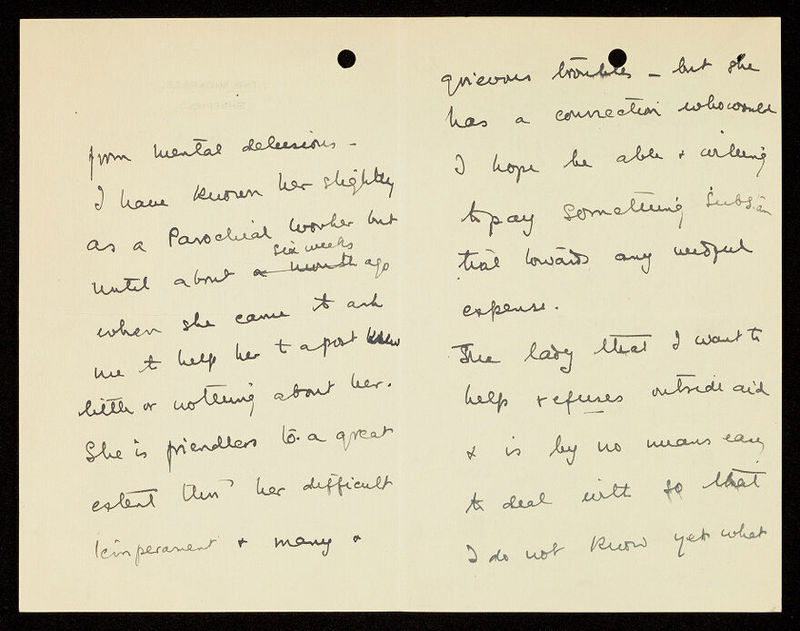 from mental delusions -
I have known her slightly
as a Parochial worker but
six weeks
until about a month ago
when she came to ask
me to help her to a post knew
little or nothing about her.
She is friendless to a great
extent thro' her difficult
temperament & many &
grievous troubles - but she
has a connection who would
I hope be able & willing
to pay something substan
tial towards any needful
expense.
The lady that I want to
help refuses outside aid
& is by no means easy
to deal with so that
I do not know yet what